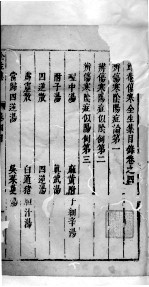 傷寒全生集目錄卷之四
辨傷寒陰陽症論第一
辨傷寒陰症似陽例第二
辨傷寒陰症似陽例第三
理中湯 麻黃附子細辛湯
附子湯 真武湯
四逆散 四逆湯
霹靂散 白通豬膽汁湯
當歸四逆湯 吳茱萸湯